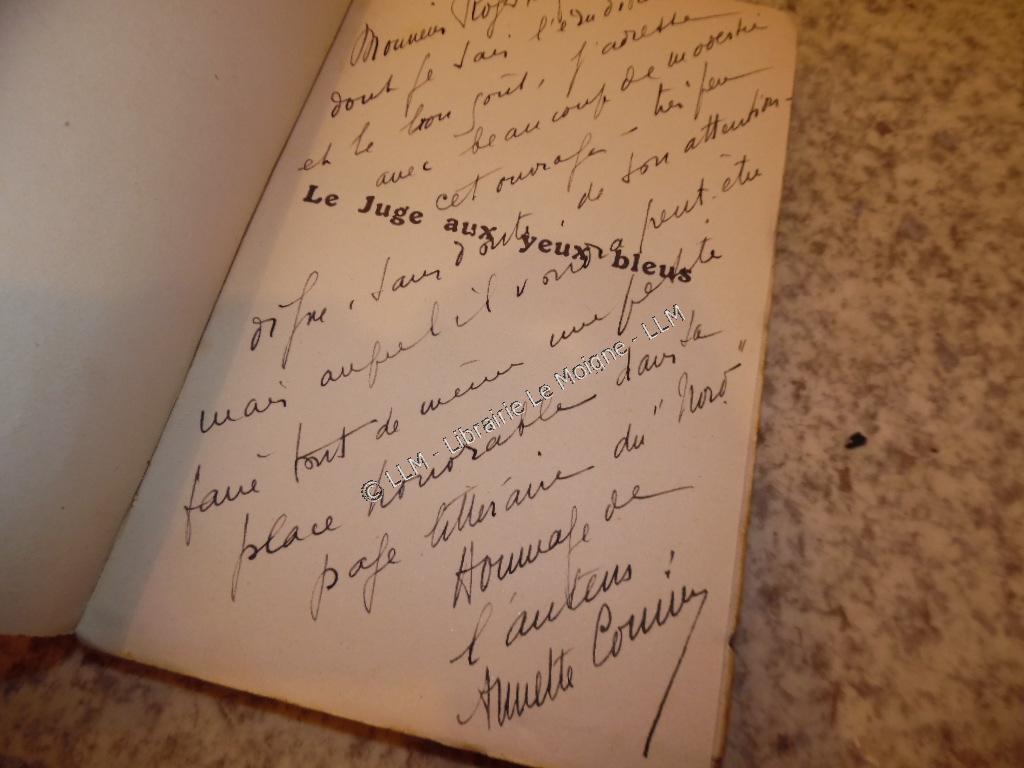 Monsieur Roger
dont je sais l'érudition
et le bon goût, j'adresse
avec beaucoup de modestie
cet ouvrage - très peu
Le Juge aux yeux bleus
digne, sans doute, de son attention -
mais auquel il voudra peut-être
faire tout de même une petite
place honorable dans la
page littéraire du "Nord"
Hommage de
l'auteur :
Annette
© LLM - Librairie Le Moigne - LLM